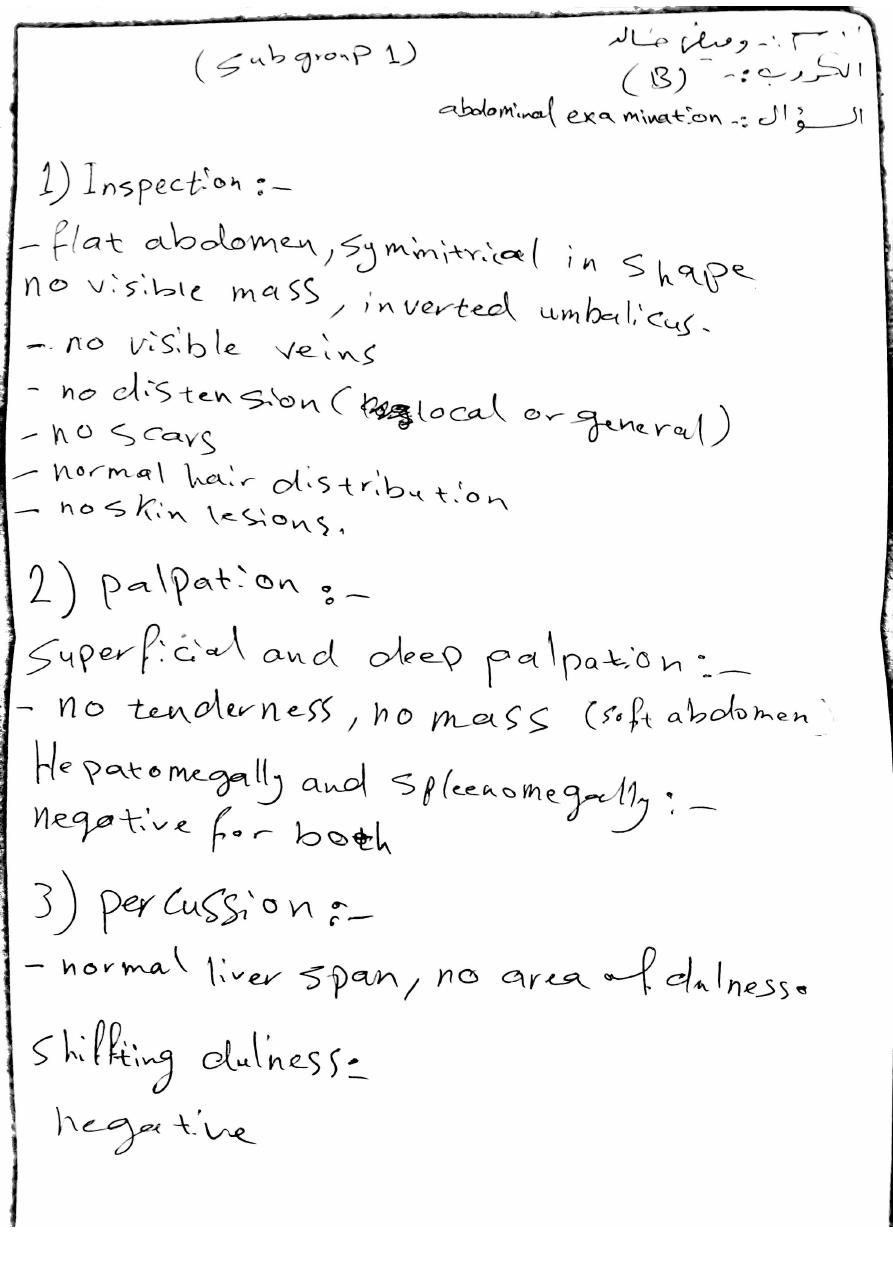 (Subgroup 1)
خالد
الكروب :- (B)
السؤال :- abdominal examination
1) Inspection :-
- flat abdomen, symmitrical in shape
no visible mass, inverted umbalicus.
- no visible veins
- no distension (local or general)
- no scars
- normal hair distribution
- no skin lesions.
2) palpation :-
Superficial and deep palpation :-
- no tenderness, no mass (soft abdomen
Hepatomegally and spleenomegally :-
negative for both
3) percussion :-
- normal liver span, no area of dulness.
Shiffting dulness :-
negative